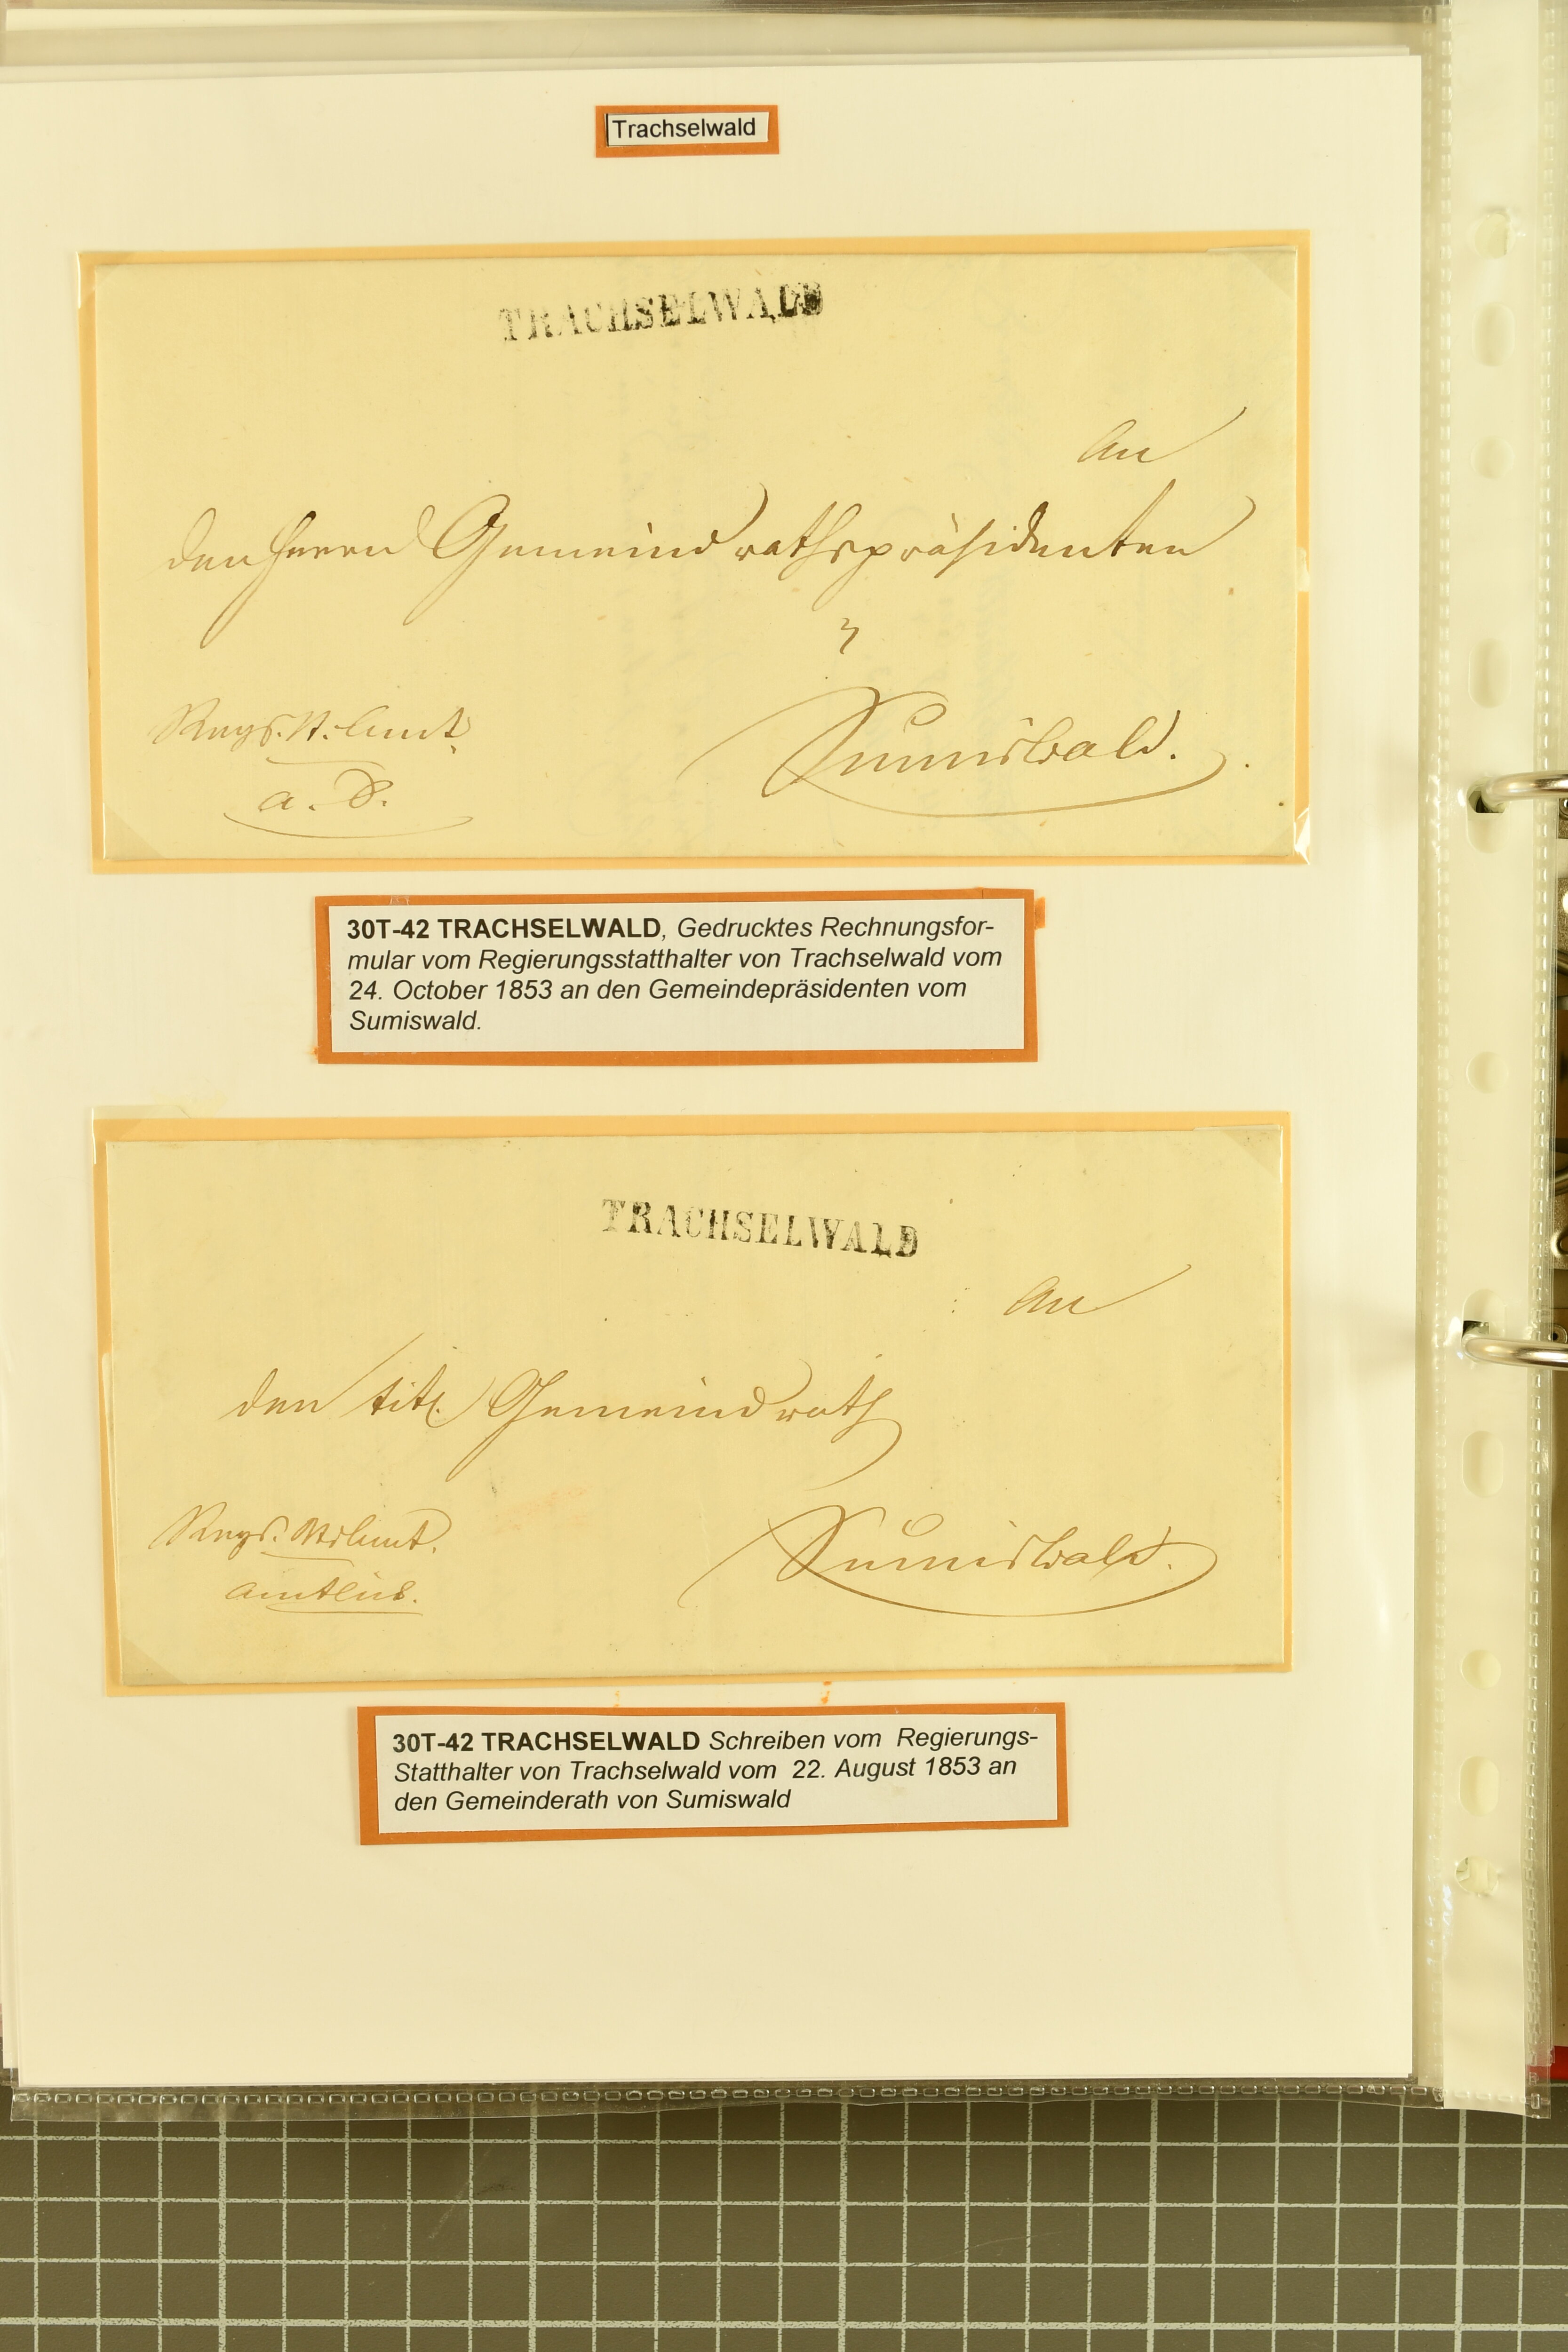 Trachselwald
TRACHSELWALD
An
den Herrn Gemeindrathspräsidenten
Sumiswald.
a. S.
30T-42 TRACHSELWALD, Gedrucktes Rechnungsfor-
mular vom Regierungsstatthalter von Trachselwald vom
24. October 1853 an den Gemeindepräsidenten vom
Sumiswald.
TRACHSELWALD
An
den titl. Gemeindrath
Sumiswald.
Regs. Amt.
amtlich.
30T-42 TRACHSELWALD Schreiben vom Regierungs-
Statthalter von Trachselwald vom 22. August 1853 an
den Gemeinderath von Sumiswald